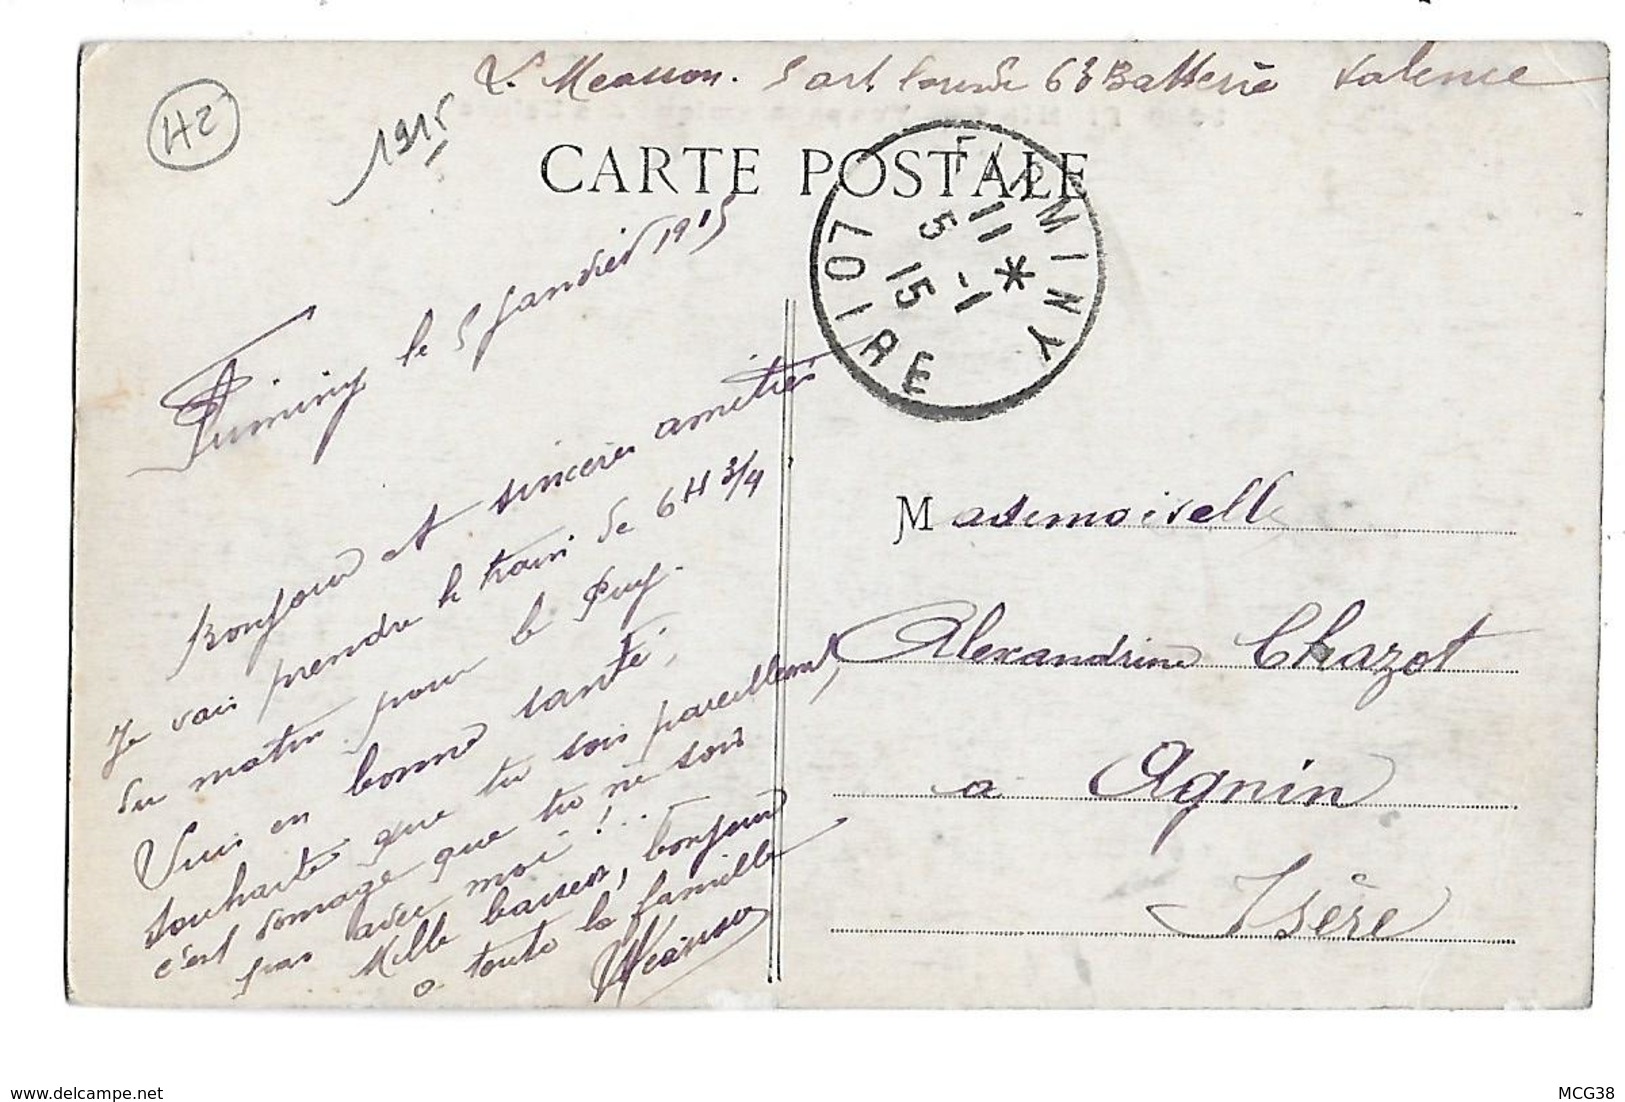 Measson. 5 art Lourde 63 Batterie Valence
H2
1915
CARTE POSTALE
FIRMINY
11 *
5 -1
15
LOIRE
Firminy le 5 Janvier 1915
Bonjour et sincères amitiés
Je vais prendre le train de 6H 3/4
du matin pour le Puy.
Suis en bonne santé,
souhaite que tu sois pareillement,
c'est domage que tu ne sois
pas avec moi !..
Mille baisers, bonjour
a toute la famille
Measson
Mademoiselle
Alexandrine Chazot
a Agnin
Isère
www.delcampe.net
MCG38